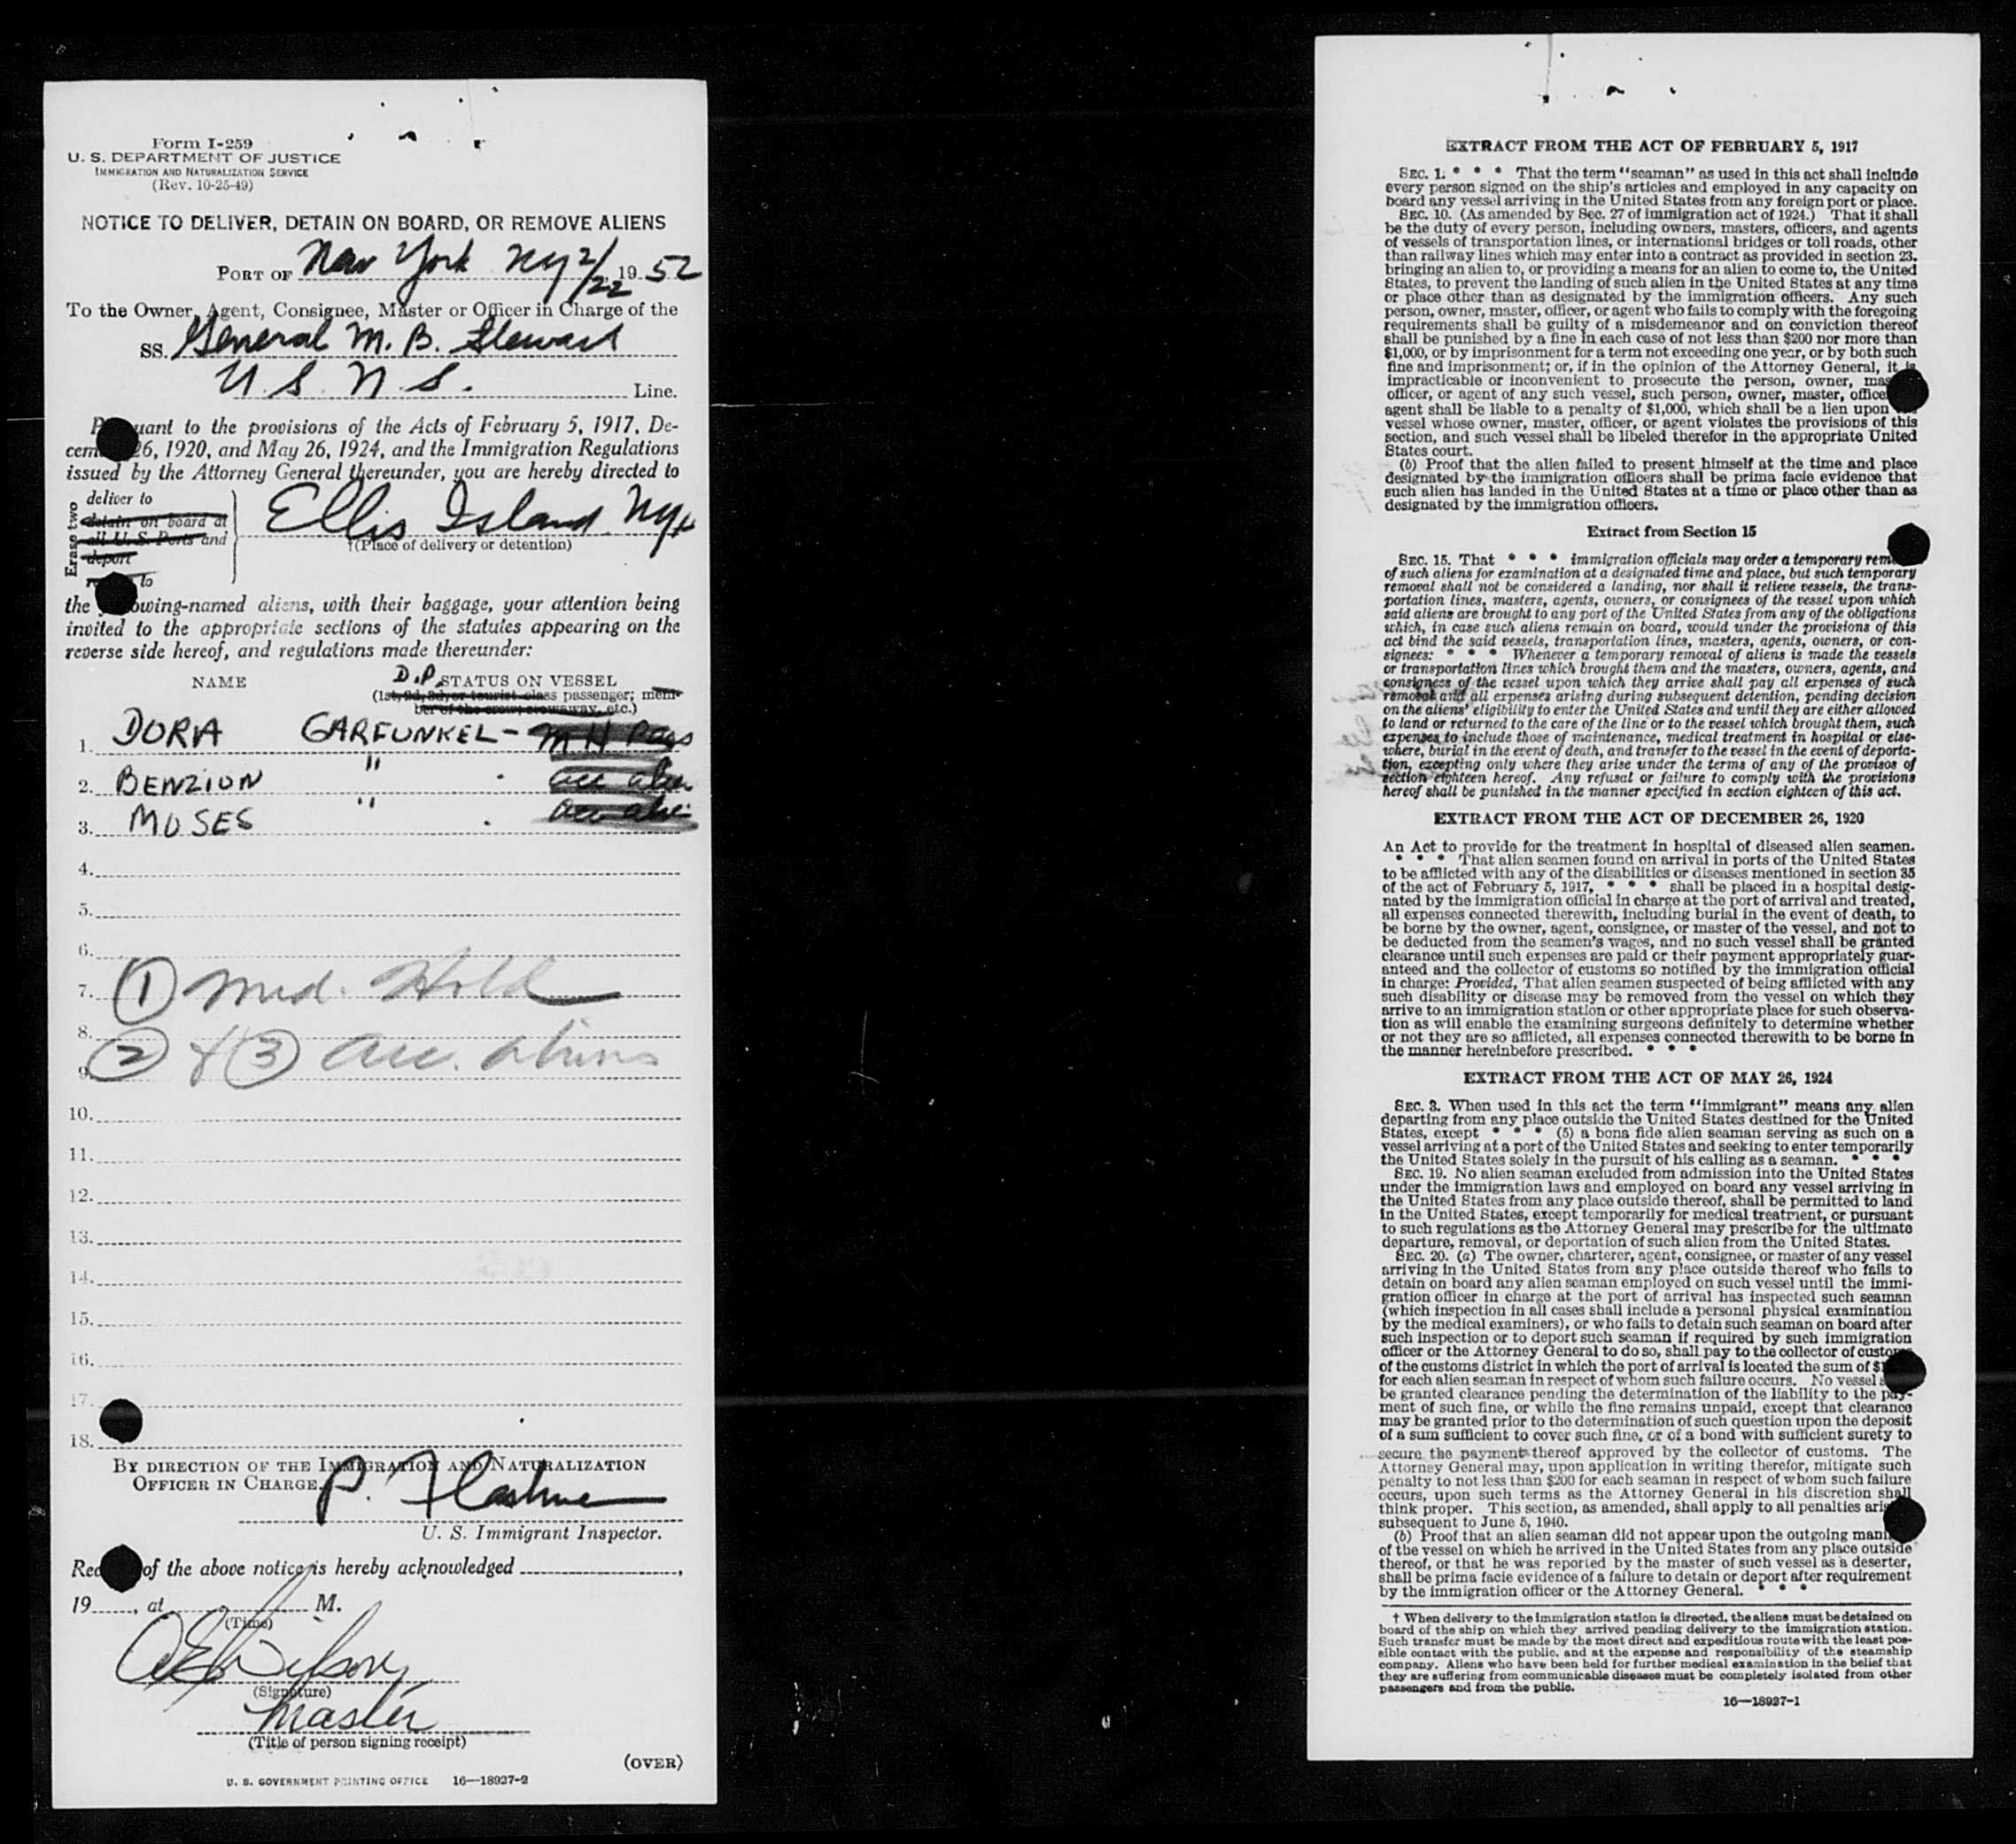 Form I-259
U. S. DEPARTMENT OF JUSTICE
IMMIGRATION AND NATURALIZATION SERVICE
(Rev. 10-25-49)
NOTICE TO DELIVER, DETAIN ON BOARD, OR REMOVE ALIENS
PORT OF New York NY 2/22 1952
To the Owner, Agent, Consignee, Master or Officer in Charge of the
SS. General M. B. Stewart
U.S.N.S. Line.
uant to the provisions of the Acts of February 5, 1917, De-
cem 26, 1920, and May 26, 1924, and the Immigration Regulations
issued by the Attorney General thereunder, you are hereby directed to
Erase two
deliver to
detain on board at
all U. S. Ports and
deport
to
Ellis Island NY
†(Place of delivery or detention)
the owing-named aliens, with their baggage, your attention being
invited to the appropriate sections of the statutes appearing on the
reverse side hereof, and regulations made thereunder:
NAME D.P. STATUS ON VESSEL
(1st, 2d, 3d, or tourist class passenger; mem-
ber of the crew; stowaway, etc.)
1. DORA GARFUNKEL - M H Pass
2. BENZION " acc alien
3. MOSES " acc alien
4.
5.
6.
7. (1) Med. Hold
8.
9. (2) & (3) Acc. aliens
10.
11.
12.
13.
14.
15.
16.
17.
18.
BY DIRECTION OF THE IMMIGRATION AND NATURALIZATION
OFFICER IN CHARGE.
P.
U. S. Immigrant Inspector.
Rec of the above notice is hereby acknowledged ,
19 , at M.
(Time)
Wilson
(Signature)
Master
(Title of person signing receipt)
(OVER)
U. S. GOVERNMENT PRINTING OFFICE 16—18927-2
EXTRACT FROM THE ACT OF FEBRUARY 5, 1917
SEC. 1. * * * That the term "seaman" as used in this act shall include
every person signed on the ship's articles and employed in any capacity on
board any vessel arriving in the United States from any foreign port or place.
SEC. 10. (As amended by Sec. 27 of immigration act of 1924.) That it shall
be the duty of every person, including owners, masters, officers, and agents
of vessels of transportation lines, or international bridges or toll roads, other
than railway lines which may enter into a contract as provided in section 23.
bringing an alien to, or providing a means for an alien to come to, the United
States, to prevent the landing of such alien in the United States at any time
or place other than as designated by the immigration officers. Any such
person, owner, master, officer, or agent who fails to comply with the foregoing
requirements shall be guilty of a misdemeanor and on conviction thereof
shall be punished by a fine in each case of not less than $200 nor more than
$1,000, or by imprisonment for a term not exceeding one year, or by both such
fine and imprisonment; or, if in the opinion of the Attorney General, it is
impracticable or inconvenient to prosecute the person, owner, mas
officer, or agent of any such vessel, such person, owner, master, office
agent shall be liable to a penalty of $1,000, which shall be a lien upon
vessel whose owner, master, officer, or agent violates the provisions of this
section, and such vessel shall be libeled therefor in the appropriate United
States court.
(b) Proof that the alien failed to present himself at the time and place
designated by the immigration officers shall be prima facie evidence that
such alien has landed in the United States at a time or place other than as
designated by the immigration officers.
Extract from Section 15
SEC. 15. That * * * immigration officials may order a temporary rem
of such aliens for examination at a designated time and place, but such temporary
removal shall not be considered a landing, nor shall it relieve vessels, the trans-
portation lines, masters, agents, owners, or consignees of the vessel upon which
said aliens are brought to any port of the United States from any of the obligations
which, in case such aliens remain on board, would under the provisions of this
act bind the said vessels, transportation lines, masters, agents, owners, or con-
signees: * * * Whenever a temporary removal of aliens is made the vessels
or transportation lines which brought them and the masters, owners, agents, and
consignees of the vessel upon which they arrive shall pay all expenses of such
removal and all expenses arising during subsequent detention, pending decision
on the aliens' eligibility to enter the United States and until they are either allowed
to land or returned to the care of the line or to the vessel which brought them, such
expenses to include those of maintenance, medical treatment in hospital or else-
where, burial in the event of death, and transfer to the vessel in the event of deporta-
tion, excepting only where they arise under the terms of any of the provisos of
section eighteen hereof. Any refusal or failure to comply with the provisions
hereof shall be punished in the manner specified in section eighteen of this act.
EXTRACT FROM THE ACT OF DECEMBER 26, 1920
An Act to provide for the treatment in hospital of diseased alien seamen.
* * * That alien seamen found on arrival in ports of the United States
to be afflicted with any of the disabilities or diseases mentioned in section 35
of the act of February 5, 1917, * * * shall be placed in a hospital desig-
nated by the immigration official in charge at the port of arrival and treated,
all expenses connected therewith, including burial in the event of death, to
be borne by the owner, agent, consignee, or master of the vessel, and not to
be deducted from the seamen's wages, and no such vessel shall be granted
clearance until such expenses are paid or their payment appropriately guar-
anteed and the collector of customs so notified by the immigration official
in charge: Provided, That alien seamen suspected of being afflicted with any
such disability or disease may be removed from the vessel on which they
arrive to an immigration station or other appropriate place for such observa-
tion as will enable the examining surgeons definitely to determine whether
or not they are so afflicted, all expenses connected therewith to be borne in
the manner hereinbefore prescribed. * * *
EXTRACT FROM THE ACT OF MAY 26, 1924
SEC. 3. When used in this act the term "immigrant" means any alien
departing from any place outside the United States destined for the United
States, except * * * (5) a bona fide alien seaman serving as such on a
vessel arriving at a port of the United States and seeking to enter temporarily
the United States solely in the pursuit of his calling as a seaman. * * *
SEC. 19. No alien seaman excluded from admission into the United States
under the immigration laws and employed on board any vessel arriving in
the United States from any place outside thereof, shall be permitted to land
in the United States, except temporarily for medical treatment, or pursuant
to such regulations as the Attorney General may prescribe for the ultimate
departure, removal, or deportation of such alien from the United States.
SEC. 20. (a) The owner, charterer, agent, consignee, or master of any vessel
arriving in the United States from any place outside thereof who fails to
detain on board any alien seaman employed on such vessel until the immi-
gration officer in charge at the port of arrival has inspected such seaman
(which inspection in all cases shall include a personal physical examination
by the medical examiners), or who fails to detain such seaman on board after
such inspection or to deport such seaman if required by such immigration
officer or the Attorney General to do so, shall pay to the collector of customs
of the customs district in which the port of arrival is located the sum of $1
for each alien seaman in respect of whom such failure occurs. No vessel s
be granted clearance pending the determination of the liability to the pay-
ment of such fine, or while the fine remains unpaid, except that clearance
may be granted prior to the determination of such question upon the deposit
of a sum sufficient to cover such fine, or of a bond with sufficient surety to
secure the payment thereof approved by the collector of customs. The
Attorney General may, upon application in writing therefor, mitigate such
penalty to not less than $200 for each seaman in respect of whom such failure
occurs, upon such terms as the Attorney General in his discretion shall
think proper. This section, as amended, shall apply to all penalties aris
subsequent to June 5, 1940.
(b) Proof that an alien seaman did not appear upon the outgoing mani
of the vessel on which he arrived in the United States from any place outside
thereof, or that he was reported by the master of such vessel as a deserter,
shall be prima facie evidence of a failure to detain or deport after requirement
by the immigration officer or the Attorney General. * * *
† When delivery to the immigration station is directed, the aliens must be detained on
board of the ship on which they arrived pending delivery to the immigration station.
Such transfer must be made by the most direct and expeditious route with the least pos-
sible contact with the public, and at the expense and responsibility of the steamship
company. Aliens who have been held for further medical examination in the belief that
they are suffering from communicable diseases must be completely isolated from other
passengers and from the public.
16—18927-1